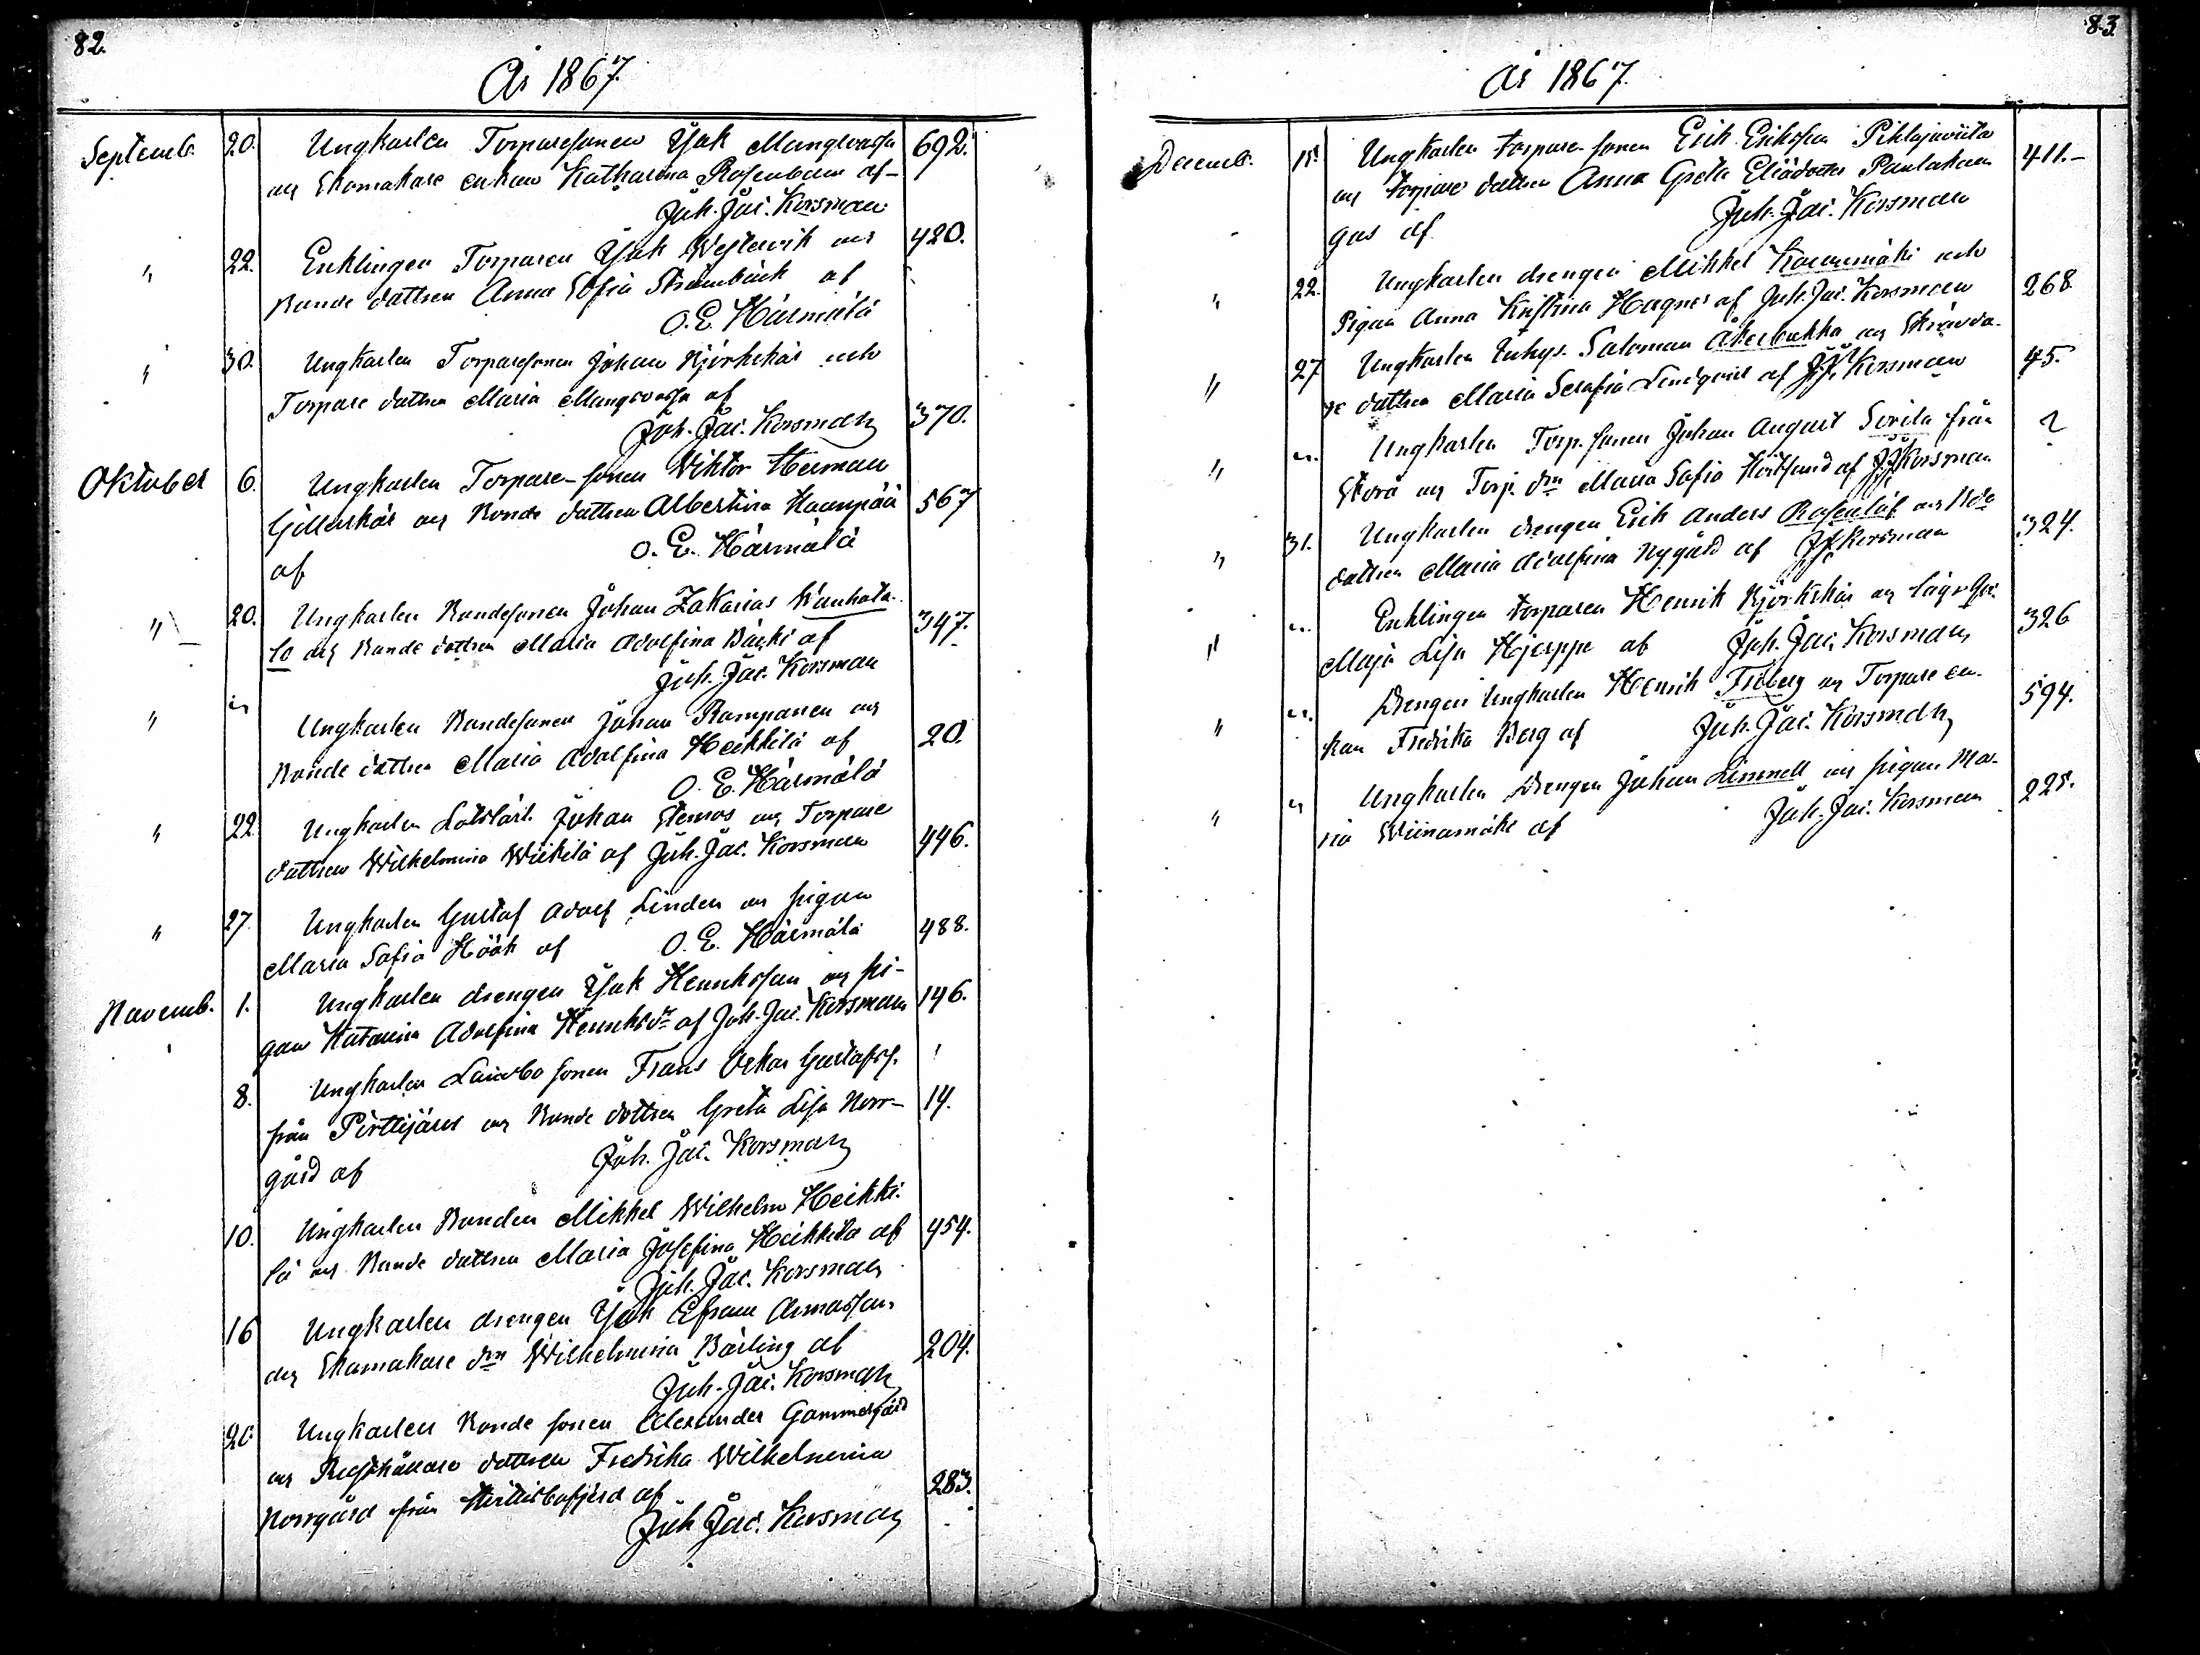 82.
År 1867.
Septemb. 20. Ungkarlen Torparesonen Isak Mangsvassa 692.
och Skomakare enkan Katharina Rosenbom af
Joh. Jac. Korsman
" 22. Enklingen Torparen Isak Westervik och 420.
Bonde dottren Anna Sofia Strömbäck af
O. E. Härmälä
" 30. Ungkarlen Torparesonen Johan Björkskär och
Torpare dottren Maria Mangsvassa af
Joh. Jac. Korsman 370.
Oktober 6. Ungkarlen Torpare-sonen Viktor Herman
Gillerskär och Bonde dottren Albertina Haanpää 567
af O. E. Härmälä
" 20. Ungkarlen Bondesonen Johan Zakarias Wanhata-
lo och Bonde dottren Maria Adolfina Bäcki af 347.
Joh. Jac. Korsman
" " Ungkarlen Bondesonen Johan Rampanen och
Bonde dottren Maria Adolfina Heikkilä af 20.
O. E. Härmälä
" 22 Ungkarlen Lotslärl. Johan Stenros och Torpare
dottren Wilhelmina Wiikilä af Joh. Jac. Korsman 446.
" 27. Ungkarlen Gustaf Adolf Linden och pigan
Maria Sofia Höök af O. E. Härmälä 488.
Novemb. 1. Ungkarlen drengen Isak Henriksson och pi-
gan Katarina Adolfina Henriksdr af Joh. Jac. Korsman 146.
8. Ungkarlen Landbo sonen Frans Oskar Gustafss.
från Perttijärvi och Bonde dottren Greta Lisa Norr- 14.
gård af Joh. Jac. Korsman
10. Ungkarlen Bonden Mikkel Wilhelm Heikki-
lä och Bonde dottren Maria Josefina Heikkilä af 454.
Joh. Jac. Korsman
16 Ungkarlen drengen Isak Efraim Annasson
och Skomakare drn Wilhelmina Bärling af 204.
Joh. Jac. Korsman
20. Ungkarlen Bonde sonen Alexander Gammelgård
och dottren Fredrika Wilhelmina
Norrgård från af 283.
Joh. Jac. Korsman
83.
År 1867.
Decemb. 15. Ungkarlen torpare sonen Erik Eriksson Pihlajaviita 411.-
och torpare dottren Anna Greta Eliädotter Pantakan-
gas af Joh. Jac. Korsman
" 22. Ungkarlen drengen Mikkel och
Pigan Anna Kristina Hagnes af Joh. Jac. Korsman 268
" 27 Ungkarlen Inhys. Salomon Åkerbakka och Skrädda-
re dottren Maria Serafia Lindqvist af J. J. Korsman 45.
" " Ungkarlen Torp. sonen Johan August Sivila från ?
Storå och Torp. drn Maria Sofia af J. J. Korsman
" 31. Ungkarlen drengen Erik Anders Rosenlöf och Bde 324.
dottren Maria Adolfina Nygård af J. J. Korsman
" " Enklingen torparen Henrik Björkskär och
Maja Lisa Hjerppe af Joh. Jac. Korsman 326
" " Drengen Ungkarlen Henrik Friberg och Torpare en-
kan Fredrika Berg af Joh. Jac. Korsman 594.
" " Ungkarlen Drengen Johan Linnell och pigan Ma-
ria Wiinamäki af Joh. Jac. Korsman 225.